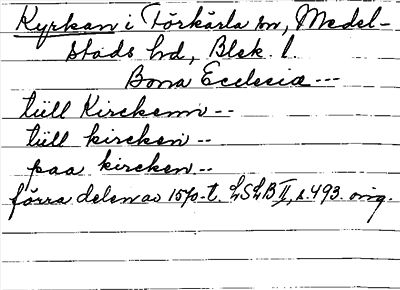 Kyrkan i Förkärla sn, Medel-
stads hd, Blek. l.
Bona Ecclesia ---
tüll Kirckenn --
tüll kircken --
paa kircken --
förra delen av 1570-t. LSLB II, s. 493. orig.